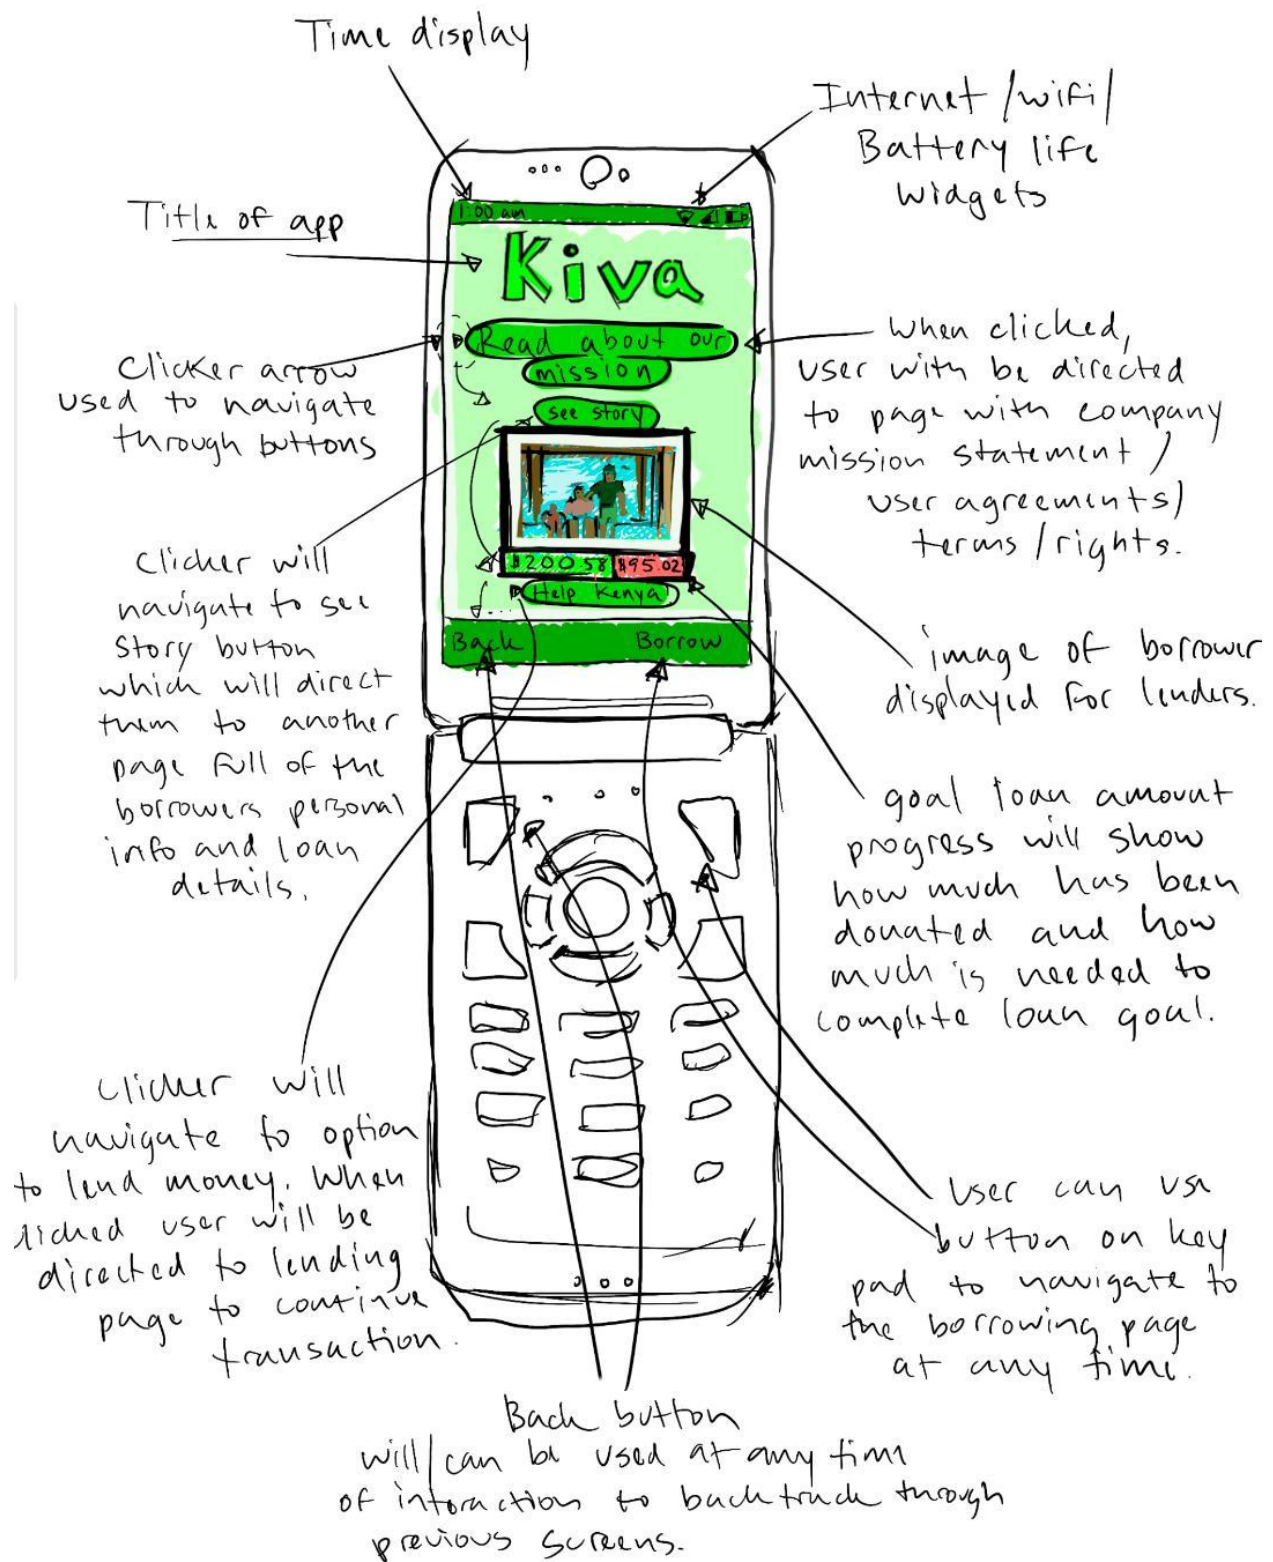 Time display
Internet / wifi /
Battery life
widgets
Title of app
1:00 am
Kiva
Read about our
mission
see story
$200.58 $95.02
Help Kenya
Back Borrow
Clicker arrow
used to navigate
through buttons
when clicked,
user with be directed
to page with company
mission statement /
user agreements/
terms / rights.
Clicker will
navigate to see
story button
which will direct
them to another
page full of the
borrowers personal
info and loan
details.
image of borrower
displayed for lenders.
goal loan amount
progress will show
how much has been
donated and how
much is needed to
complete loan goal.
Clicker will
navigate to option
to lend money. When
clicked user will be
directed to lending
page to continue
transaction.
User can use
button on key
pad to navigate to
the borrowing page
at any time.
Back button
will/can be used at any time
of interaction to backtrack through
previous screens.